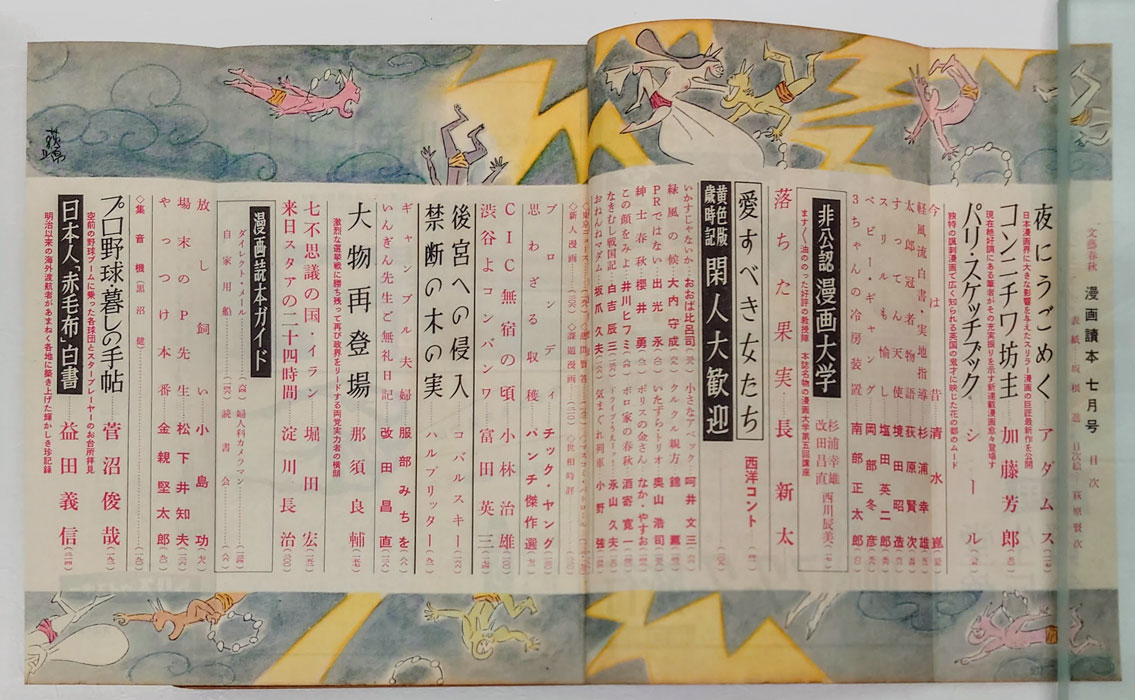 文藝春秋 漫画讀本 七月号 目次
表紙・坂根進 目次絵・萩原賢次
夜にうごめく アダムス
日本漫画界に大きな影響を与えたスリラー漫画の巨匠最新作を公開
コンニチワ坊主 加藤芳郎
現在絶好調にある筆者がその充実振りを示す新連載漫画愈々登場す
パリ・スケッチブック シール
独特の諷刺漫画で広く知られる英国の鬼才に映じた花の都のムード
今は昔 清水崑
軽風流白書・実地指導 杉浦幸雄
太郎冠者物語 荻原賢次
すてってん天使 境田昭造
スリルも愉し 塩田英二郎
ベビー・ギャング 岡部冬彦
3ちゃんの冷房装置 南部正太郎
非公認 漫画大学
杉浦幸雄
改田昌直
西川辰美
ますます油ののった好評の教授陣 本誌名物の漫画大学第五回講座
落ちた果実 長新太
愛すべき女たち 西洋コント
黄色版歳時記 閑人大歓迎
いかすじゃないか・おおば比呂司
緑風の候・大内守成
PRではない・出光永
紳士春秋・櫻井勇
この顔をみよ・井川ヒフミ
なきむし戦国記・白吉辰三
おねんねマダム・坂爪久夫
小さなアベック・呵井文三
クルクル親方
いたずら・トリオ・奥山浩司
ボリスの金さん・なか・やすお
ボロ家の春秋・酒寄寛一
ドライブうぇー!・永山久夫
気まぐれ列車・小野強
◇新人漫画 ◇課題漫画 ◇世相時評
ブロンディ チック・ヤング
思わざる収穫 パンチ傑作選
CIC無宿の頃 小林治雄
渋谷よコンバンワ 富田英三
後宮への侵入 コバルスキー
禁断の木の実 ハルブリッター
ギャンブル夫婦 服部みちを
いんぎん先生ご無礼日記 改田昌直
大物再登場 那須良輔
激烈な選挙戦に勝ち残って再び政界をリードする両党実力者の横顔
七不思議の国・イラン 堀田宏
来日スタアの二十四時間 淀川長治
漫画読本ガイド
ダイレクト・メール
自家用船
婦人科カメラマン
読書会
放し飼い 小島功
場末のP先生 松下井知夫
やっつけ本番 金親堅太郎
◇集音機(黒沼健)
プロ野球暮しの手帖 菅沼俊哉
空前の野球ブームに乗った各球団とスタープレーヤーのお台所拝見
日本人「赤毛布」白書 益田義信
明治以来の海外渡航者があまねく各地に築き上げた輝かしき珍記録